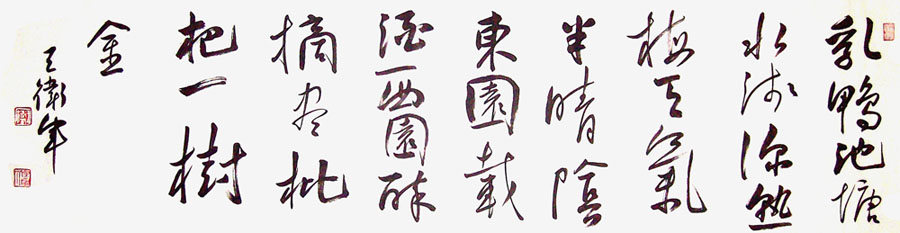 乳鴨池塘
水淺深熟
梅天氣
半晴陰
東園載
酒西園醉
摘盡枇
杷一樹
金